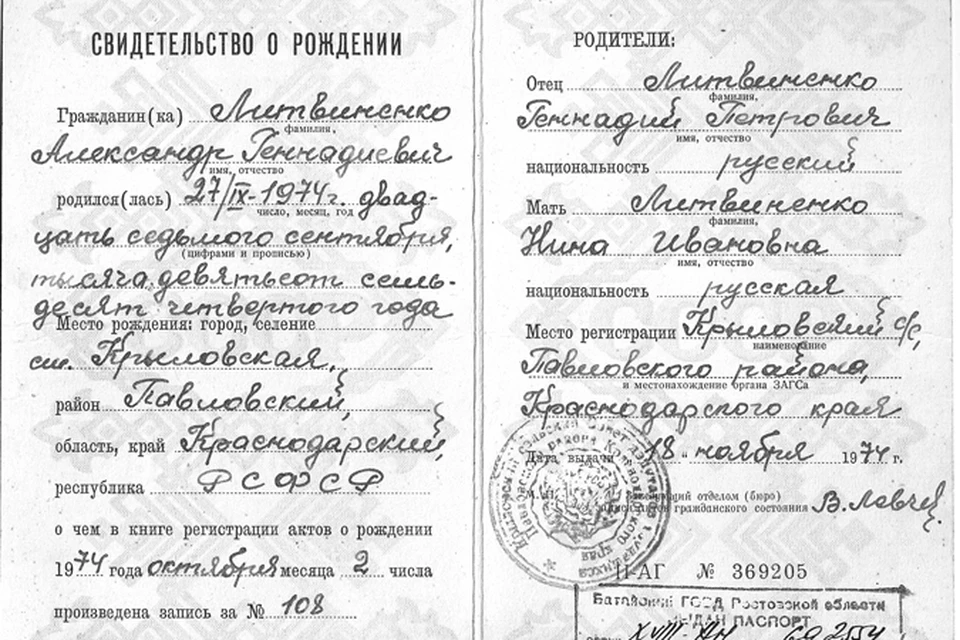 СВИДЕТЕЛЬСТВО О РОЖДЕНИИ
Гражданин(ка) Литвиненко
фамилия,
Александр Геннадиевич
имя, отчество
родился(лась) 27/IX-1974г. двад-
число, месяц, год
цать седьмого сентября,
(цифрами и прописью)
тысяча девятьсот семь-
десят четвертого года
Место рождения: город, селение
ст. Крыловская,
район Павловский,
область, край Краснодарский,
республика РСФСР
о чем в книге регистрации актов о рождении
1974 года октября месяца 2 числа
произведена запись за № 108
РОДИТЕЛИ:
Отец Литвиненко
фамилия,
Геннадий Петрович
имя, отчество
национальность русский
Мать Литвиненко
фамилия,
Нина Ивановна
имя, отчество
национальность русская
Место регистрации Крыловский с/с,
наименование
Павловского района,
и местонахождение органа ЗАГСа
Краснодарского края
Дата выдачи 18 " ноября 1974 г.
отделом (бюро)
гражданского состояния
II-АГ № 369205
Ростовской области
ПАСПОРТ
XVIII-АН